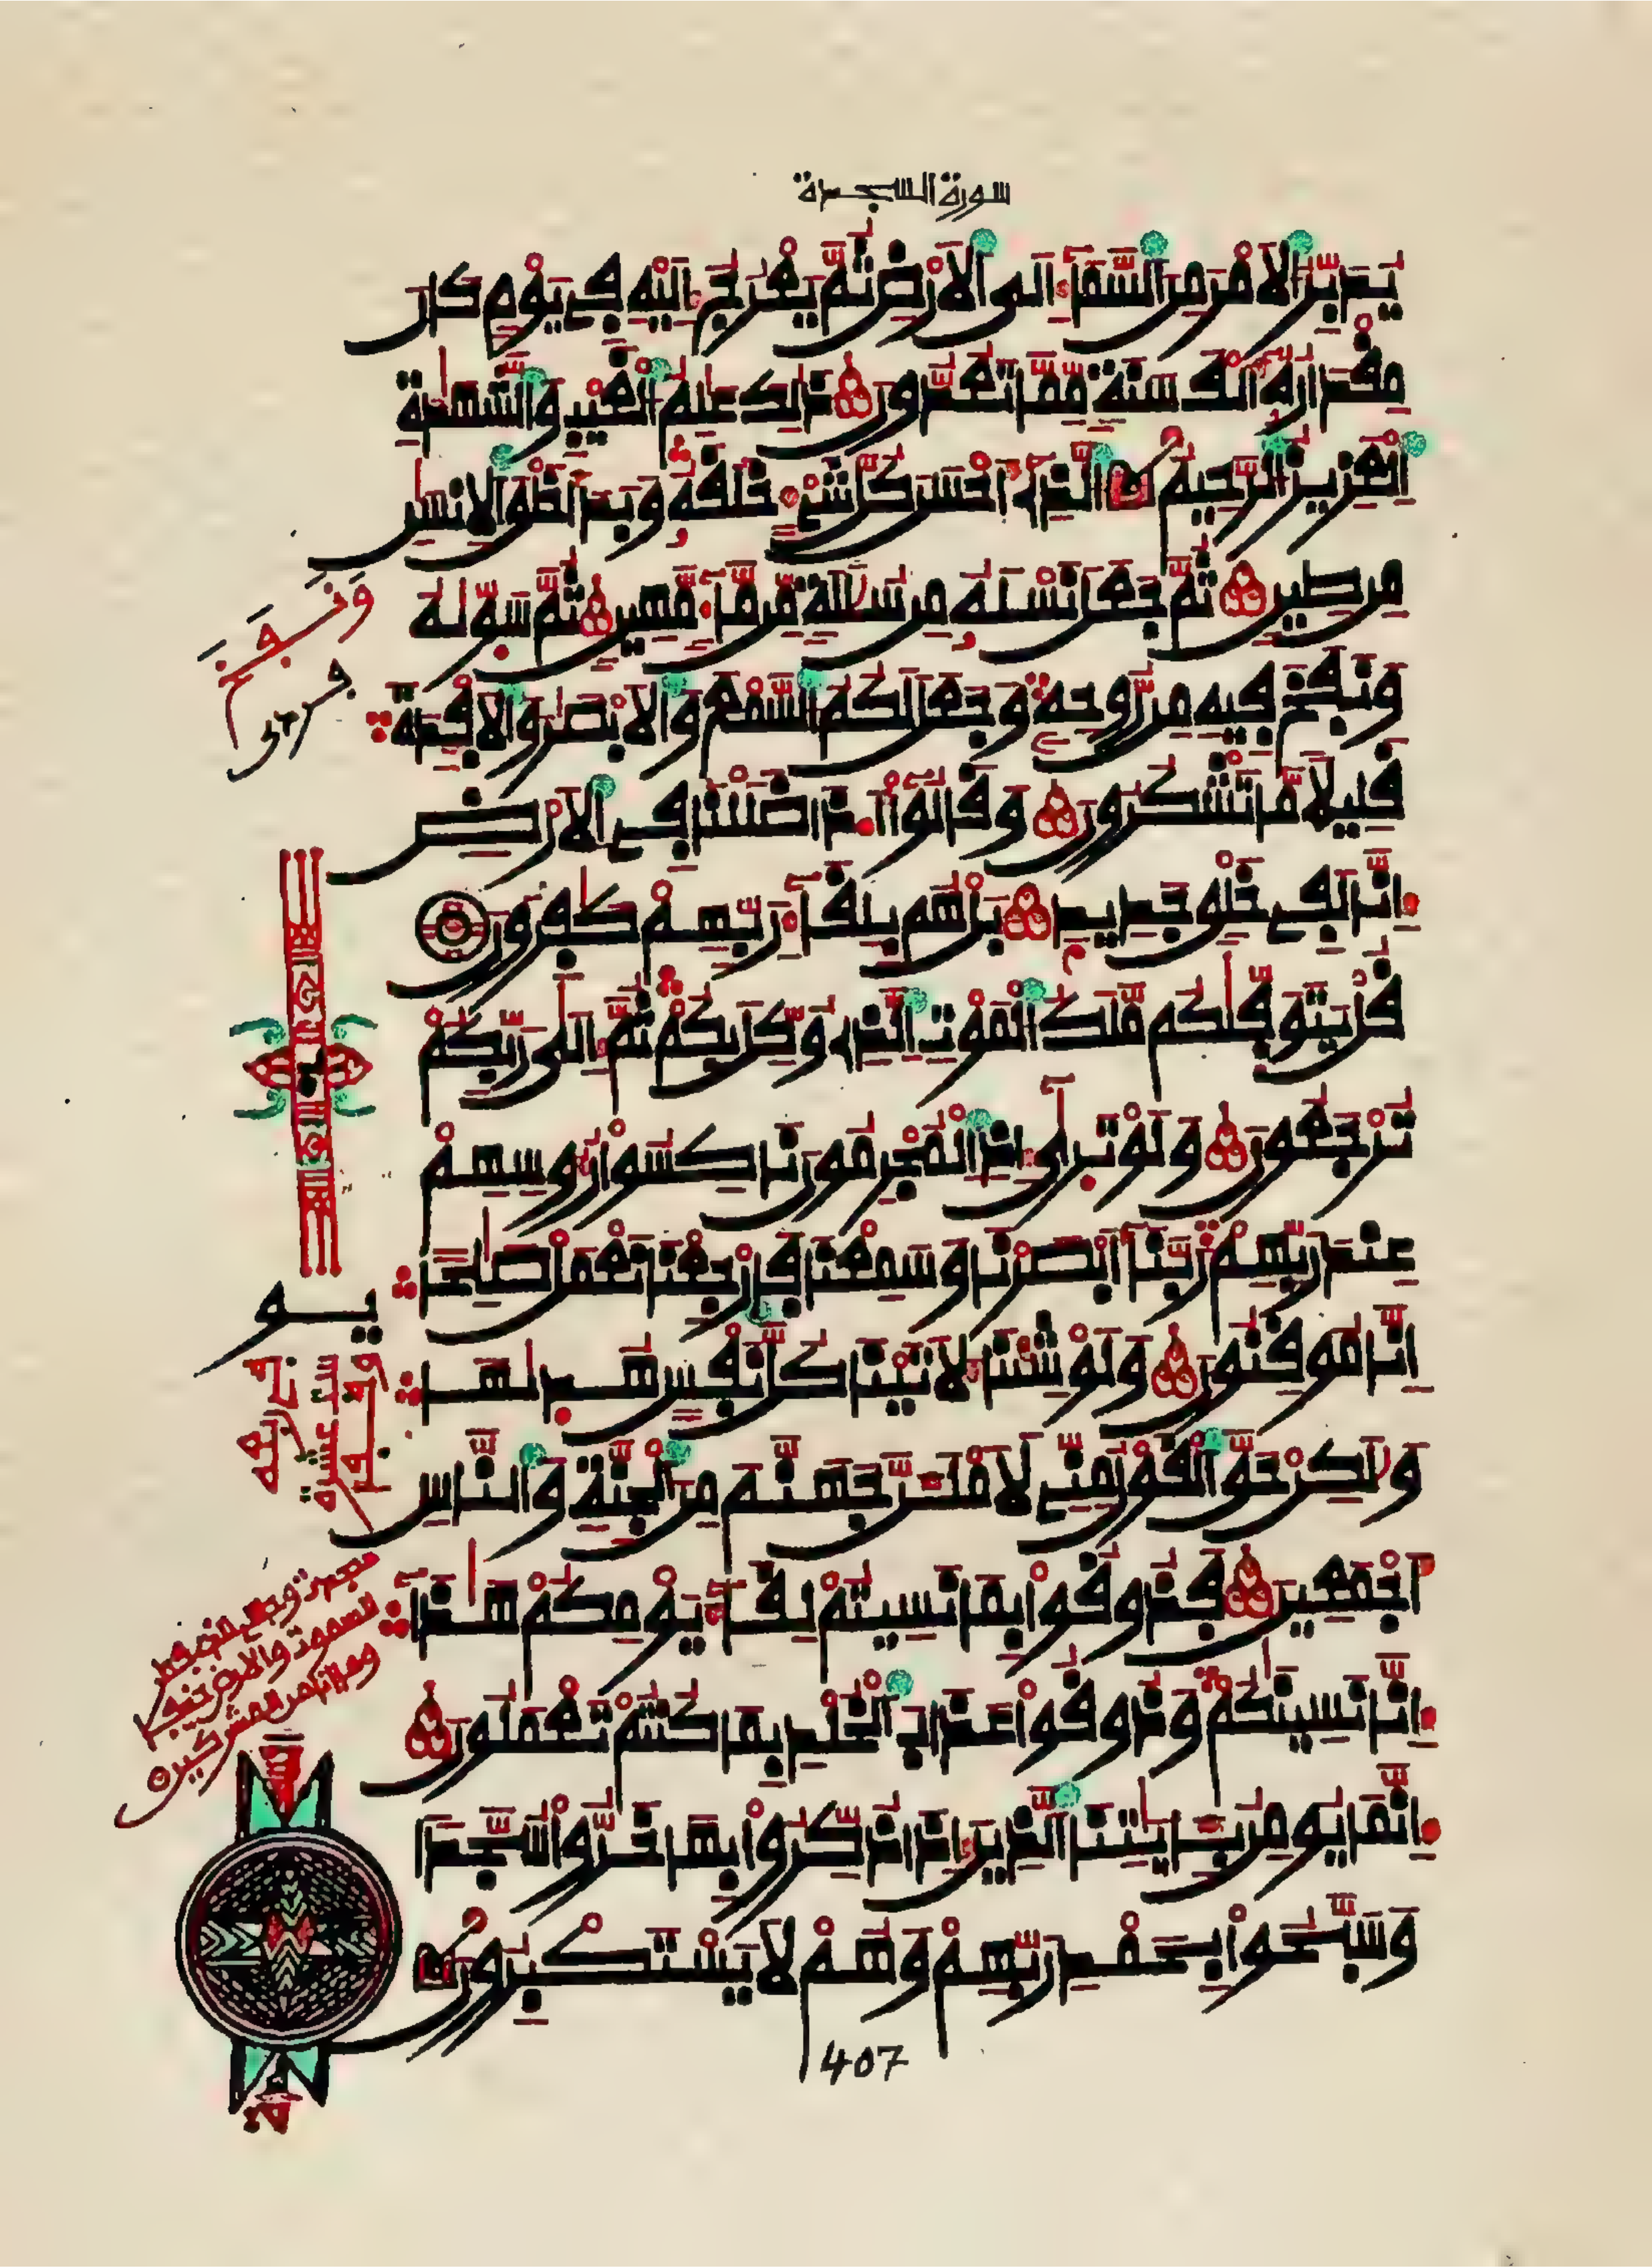 سورة السجدة
يُدَبِّرُ الَامْرَ مِنَ السَّمَآءِ اِلَى الَارْضِ ثُمَّ يَعْرُجُ اِلَيْهِ فِے يَوْمٍ كَانَ
مِقْدَارُهُۥٓ أَلْفَ سَنَةٍ مِّمَّا تَعُدُّونَ ذَٰلِكَ عَٰلِمُ الْغَيْبِ وَالشَّهَٰدَةِ
اِ۬لْعَزِيزُ الرَّحِيمُ الذِےٓ أَحْسَنَ كُلَّ شَےْءٍ خَلَقَهُۥ وَبَدَأَ خَلْقَ الِانسَٰنِ
مِن طِينٍ ثُمَّ جَعَلَ نَسْلَهُۥ مِن سُلَٰلَةٍ مِّن مَّآءٍ مَّهِينٍ ثُمَّ سَوّ۪يٰهُ
وَنَفَخَ فِيهِ مِن رُّوحِهِۦ وَجَعَلَ لَكُمُ السَّمْعَ وَالَابْصَٰرَ وَالَافْـِٕدَةَ
قَلِيلًا مَّا تَشْكُرُونَ وَقَالُوٓاْ أَ.ذَا ضَلَلْنَا فِے الَارْضِ
إِنَّا لَفِے خَلْقٍ جَدِيدٍ بَلْ هُم بِلِقَآءِ رَبِّهِمْ كَٰفِرُونَ
قُلْ يَتَوَفّ۪يٰكُم مَّلَكُ الْمَوْتِ الذِے وُكِّلَ بِكُمْ ثُمَّ إِلَىٰ رَبِّكُمْ
تُرْجَعُونَ وَلَوْ تَر۪يٰٓ إِذِ الْمُجْرِمُونَ نَاكِسُواْ رُءُوسِهِمْ
عِندَ رَبِّهِمْ رَبَّنَآ أَبْصَرْنَا وَسَمِعْنَا فَارْجِعْنَا نَعْمَلْ صَٰلِحًا
اِنَّا مُوقِنُونَ وَلَوْ شِئْنَا لَأَتَيْنَا كُلَّ نَفْسٍ هُد۪يٰهَا
وَلَٰكِنْ حَقَّ الْقَوْلُ مِنِّے لَأَمْلَأَنَّ جَهَنَّمَ مِنَ الْجِنَّةِ وَالنَّاسِ
أَجْمَعِينَ فَذُوقُواْ بِمَا نَسِيتُمْ لِقَآءَ يَوْمِكُمْ هَٰذَآ
إِنَّا نَسِينَٰكُمْ وَذُوقُواْ عَذَابَ الْخُلْدِ بِمَا كُنتُمْ تَعْمَلُونَ
إِنَّمَا يُومِنُ بِـَٔايَٰتِنَا الذِينَ إِذَا ذُكِّرُواْ بِهَا خَرُّواْ سُجَّدًا
وَسَبَّحُواْ بِحَمْدِ رَبِّهِمْ وَهُمْ لَا يَسْتَكْبِرُونَ
وَنَفَخَ
407